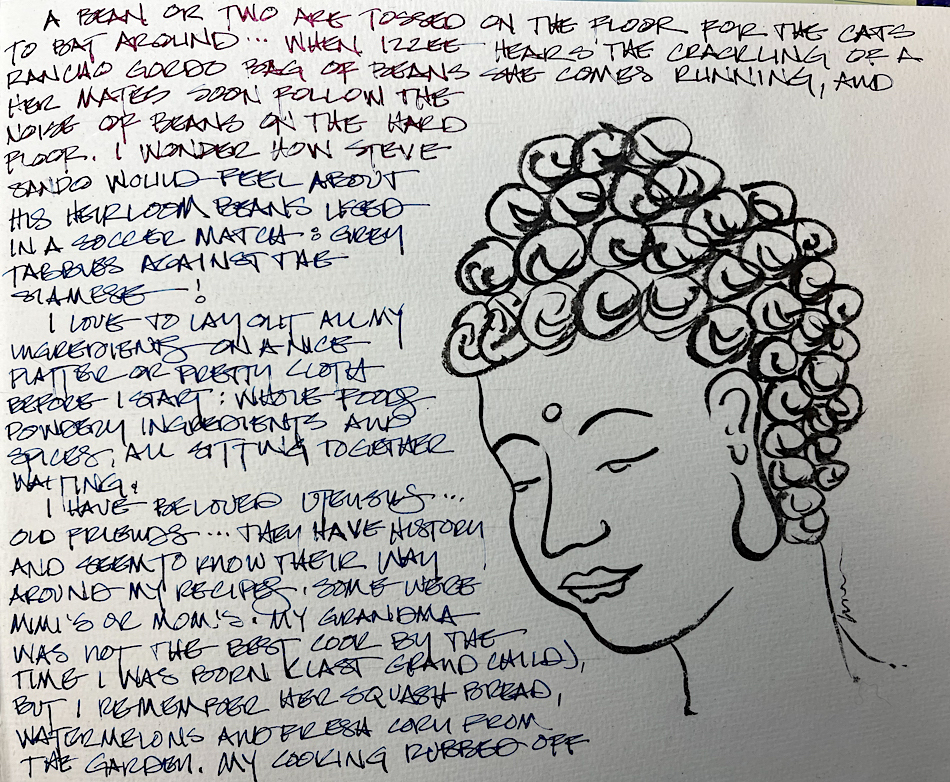 A BEAN OR TWO ARE TOSSED ON THE FLOOR FOR THE CATS
TO BAT AROUND... WHEN IZZEE HEARS THE CRACKLING OF A
RANCHO GORDO BAG OF BEANS SHE COMES RUNNING, AND
HER MATES SOON FOLLOW THE
NOISE OF BEANS ON THE HARD
FLOOR. I WONDER HOW STEVE
SANDO WOULD FEEL ABOUT
HIS HEIRLOOM BEANS USED
IN A SOCCER MATCH: GREY
TABBIES AGAINST THE
SIAMESE!
I LOVE TO LAY OUT ALL MY
INGREDIENTS ON A NICE
PLATTER OR PRETTY CLOTH
BEFORE I START: WHOLE FOODS
POWDERY INGREDIENTS AND
SPICES, ALL SITTING TOGETHER
WAITING.
I HAVE BELOVED UTENSILS...
OLD FRIENDS... THEY HAVE HISTORY
AND SEEM TO KNOW THEIR WAY
AROUND MY RECIPES. SOME WERE
MIMI'S OR MOM'S. MY GRANDMA
WAS NOT THE BEST COOK BY THE
TIME I WAS BORN (LAST GRAND CHILD),
BUT I REMEMBER HER SQUASH BREAD,
WATERMELONS AND FRESH CORN FROM
THE GARDEN. MY COOKING RUBBED OFF